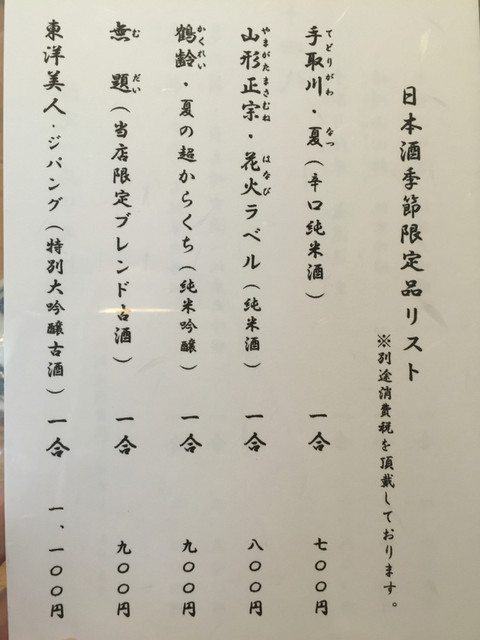 日本酒季節限定品リスト
※別途消費税を頂戴しております。
手取川・夏(辛口純米酒) 一合 七〇〇円
てどりがわ なつ
山形正宗・花火ラベル(純米酒) 一合 八〇〇円
やまがたまさむね はなび
鶴齢・夏の超からくち(純米吟醸) 一合 九〇〇円
かくれい
無題(当店限定ブレンド古酒) 一合 九〇〇円
むだい
東洋美人・ジパング(特別大吟醸古酒) 一合 一、一〇〇円